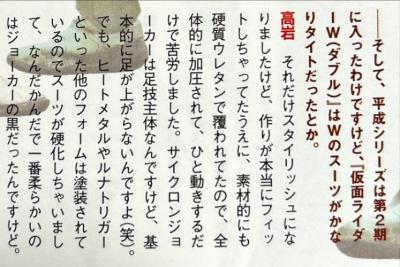 ――そして、平成シリーズは第2期
に入ったわけですけど、『仮面ライダ
ーW(ダブル)』はWのスーツがかな
りタイトだったとか。
高岩　それだけスタイリッシュにな
りましたけど、作りが本当にフィッ
トしちゃってたうえに、素材的にも
硬質ウレタンで覆われてたので、全
体的に加圧されて、ひと動きするだ
けで苦労しました。サイクロンジョ
ーカーは足技主体なんですけど、基
本的に足が上がらないんですよ(笑)。
でも、ヒートメタルやルナトリガー
といった他のフォームは塗装されて
いるのでスーツが硬化しちゃいまし
て、なんだかんだで一番柔らかいの
はジョーカーの黒だったんですけど。